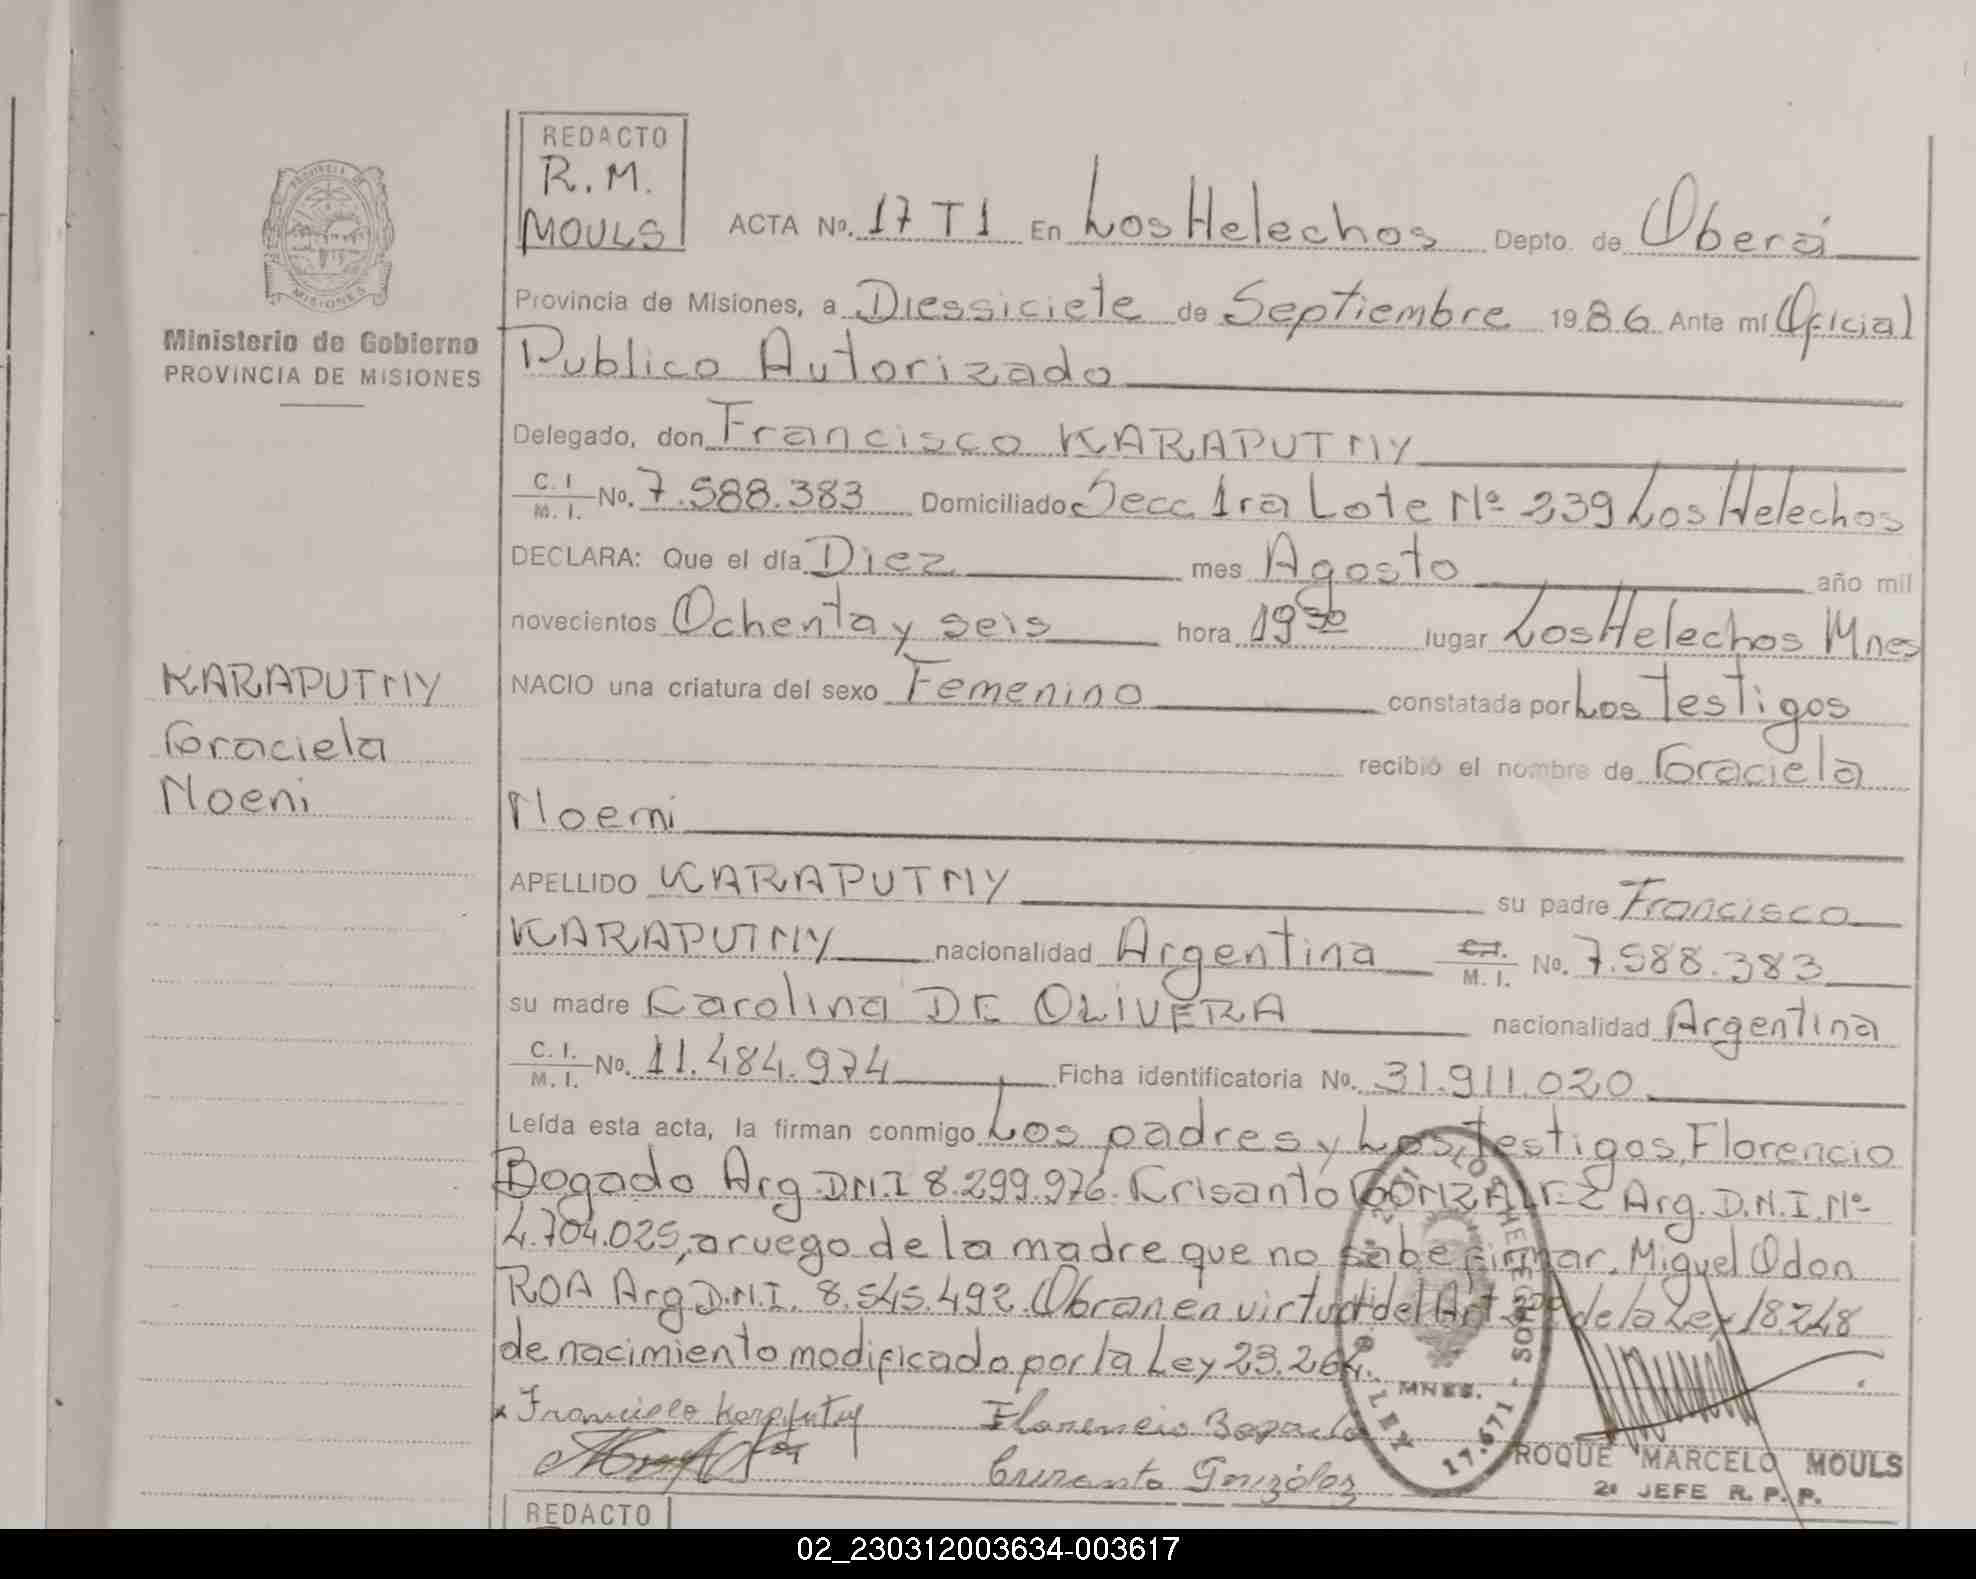 REDACTO
R. M.
MOULS
ACTA No. 17 T1 En Los Helechos Depto. de Oberá
Provincia de Misiones, a Diessiciete de Septiembre 1986 Ante mí Oficial
Publico Autorizado
Ministerio de Gobierno
PROVINCIA DE MISIONES
Delegado, don Francisco KARAPUTNY
C. I. / M. I. No. 7.588.383 Domiciliado Secc. 1ra Lote Nº 239 Los Helechos
DECLARA: Que el día Diez mes Agosto año mil
novecientos Ochenta y seis hora 19 30 lugar Los Helechos Mnes
KARAPUTNY
Graciela
Noeni
NACIO una criatura del sexo Femenino constatada por Los Testigos
recibió el nombre de Graciela
Noemi
APELLIDO KARAPUTNY su padre Francisco
KARAPUTNY nacionalidad Argentina C.I. / M. I. No. 7.588.383
su madre Carolina DE OLIVERA nacionalidad Argentina
C. I. / M. I. No. 11.484.974 Ficha identificatoria No. 31.911.020
Leída esta acta, la firman conmigo Los padres y Los Testigos, Florencio
Bogado Arg. D.N.I 8.299.976. Crisanto GONZALEZ Arg. D.N.I. Nº
4.704.025, a ruego de la madre que no sabe firmar. Miguel Odon
ROA Arg D.N.I. 8.545.492. Obran en virtud del Art. de la Ley 18.248
de nacimiento modificado por la Ley 23.264.
x Francisco Karaputny Florencio Bogado
Crisanto González
MNES.
LEY 17.671
ROQUE MARCELO MOULS
2º JEFE R. P. P.
REDACTO
02_230312003634-003617